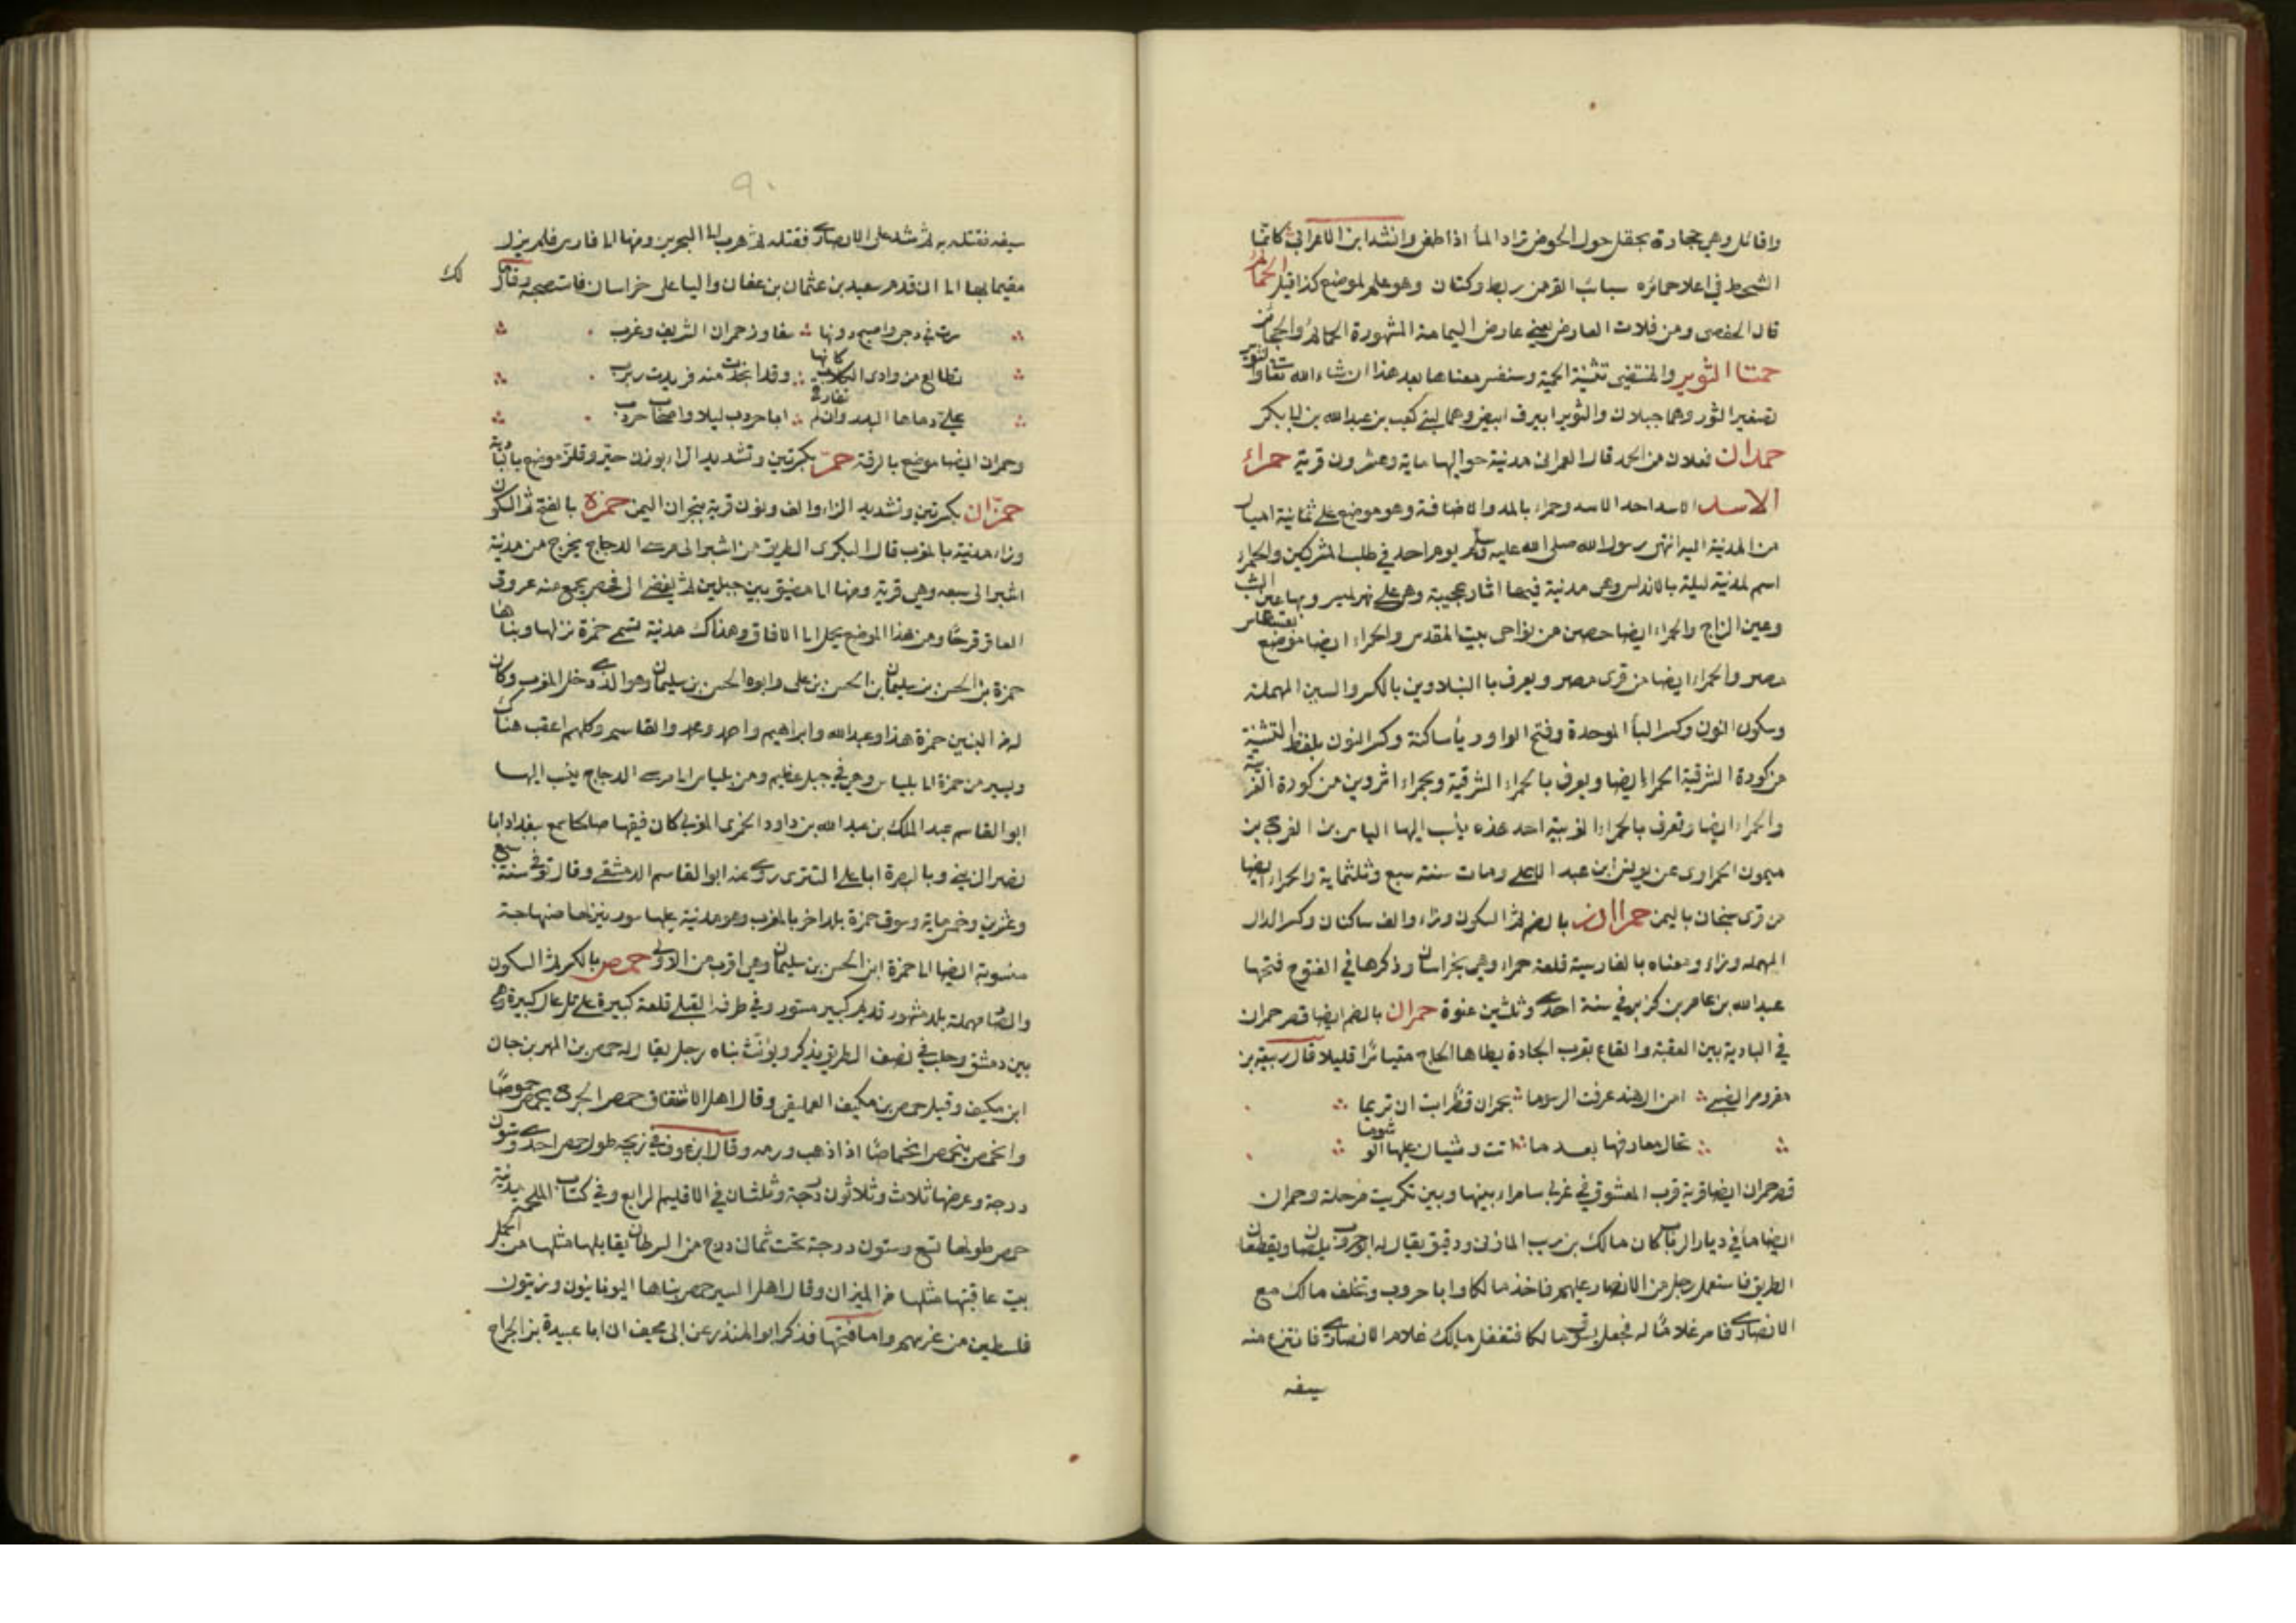 واقائل وهي حجارة تجعل حول الحوض ترد الماء اذا طغى وانشد ابن الاعرابي كانما
الشحط في اعلا حمائره سبائب القز من ريط وكتان وهو علم لموضع كذا قيل الحمائر
قال الحفصي ومن فلات العارض يعني عارض اليمامة المشهورة الحمائر والحمائز
حمتا الثوير والمنتضى تثنية الحمة وسنفسر معناها بعد هذا ان شاء الله تعالى والثوير
تصغير الثور وهما جبلان والثوير ابيرق ابيض وهما لبني كعب بن عبدالله بن ابي بكر
حمدان فعلان من الحمد قال العمراني مدينة حواليها ماية وعشرون قرية حمراء
الاسد الاسد احد الاسد وحمراء بالمد والاضافة وهو موضع على ثمانية اميال
من المدينة اليه انتهى رسول الله صلى الله عليه وسلم يوم احد في طلب المشركين والحمراء
اسم لمدينة لبلة بالاندلس وهي مدينة فيها اثار عجيبة وهي على نهر لهسر وبها عين الشب
وعين الزاج والحمراء ايضا حصن من نواحي بيت المقدس والحمراء ايضا موضع بفسطاط
مصر والحمراء ايضا من قرى مصر ويعرف با البنلاوين بالكسر والسين المهملة
وسكون النون وكسر الباء الموحدة وفتح الواو وياء ساكنة وكسر النون بلفظ التثنية
من كورة الشرقية الحمراء ايضا ويعرف بالحمراء الشرقية وبحمراء اثروين من كورة الغربية
والحمراء ايضا وتعرف بالحمراء الغربية احد هذه ينسب اليها الياس بن الفرج بن
ميمون الحمراوي عن يونس ابن عبد الاعلى ومات سنة سبع وثلثماية والحمراء ايضا
من قرى سنحان باليمن حمرااندز بالضم ثم السكون وراء والف ساكنان وكسر الدال
المهملة وزاء ومعناه بالفارسية قلعة حمراء وهي بخراسان وذكرها في الفتوح فتحها
عبدالله بن عامر بن كريز في سنة احدى وثلثين عنوة حمران بالضم ايضا قصر حمران
في البادية بين العقبة والقاع بقرب الجادة يطاها الحاج متياسرا قليلا قال ربيعة بن
مقروم الضبي امن ال هند عرفت الرسوما بحمران قصرا ابت ان تريما
تخال معارفها بعد ما اتت دشيان عليها الوشوما
قصر حمران ايضا قرية قرب المعشوق في غربي سامراء بينها وبين تكريت مرحلة وحمران
ايضا ماء في ديار الرباب كان مالك بن ريب المازني ورفيق يقال له ابو حروب يلصا ويقطعان
الطريق فاستعمل رجل من الانصار عليهم فاخذ مالكا وابا حروب وتخلف مالك مع
الانصاري فامر غلاما له فجعل يسوق مالكا فتغفل مالك غلام الانصاري فانتزع منه
سيفه
٩٠
سيفه فقتله به ثم شد على الانصاري فقتله ثم هرب الى البحرين ومنها الى فارس فلم يزل
مقيما بها الى ان قدم سعيد بن عثمان بن عفان واليا على خراسان فاستصحبه وقال لك
سرت في دجى واصبح دونها مفاوز حمران الشريف وغرب
تطالع من وادي الكلاب كانها وقد انجدت منه فريدت ربرب
على دماها البدن ان لم تفارق ابا حروب ليلا واصحاب حرب
وحمران ايضا موضع بالرقة حمر بكسرتين وتشديد الراء بوزن حبر وفلز موضع بالبادية
حمزان بكسرتين وتشديد الزاء والف ونون قرية بنجران اليمن حمزة بالفتح ثم السكون
وزاء مدينة بالمغرب قال البكري الطريق من اشير الى مرسى الدجاج يخرج من مدينة
اشير الى سعه وهي قرية ومنها الى مضيق بين جبلين ثم يفضى الى فحص يجمع منه عروق
العاقرقرحا ومن هذا الموضع يحل الى الافاق وهناك مدينة تسمى حمزة نزلها وبناها
حمزة بن الحسن بن سليمان بن الحسن بن علي وابوه الحسن بن سليمان وهو الذي دخل المغرب وكان
له من البنين حمزة هذا وعبدالله وابراهيم واحمد ومحمد والقاسم وكلهم اعقب هناك
ويسير من حمزة الى بلياس وهي في جبل عظيم ومن بلياس الى مرسى الدجاج ينسب اليها
ابو القاسم عبد الملك بن عبدالله بن داود الحمزي المغربي كان فقيها صالحا سمع ببغداد ابا
نصر الزينبي وبالبصرة ابا علي التستري روى عنه ابو القاسم الدمشقي وقال توفي سنة سبع
وعشرين وخمسماية وسوق حمزة بلد اخر بالمغرب وهو مدينة عليها سور ينزلها صنهاجة
منسوبة ايضا الى حمزة ابن الحسن بن سليمان وهي اقرب من الاولى حمص بالكسر ثم السكون
والصاد مهملة بلد مشهور قديم كبير مسور وفي طرفه القبلي قلعة كبيرة على تل عال كبيرة وهي
بين دمشق وحلب في نصف الطريق يذكر ويؤنث بناه رجل يقال له حمص بن المهر بن جان
ابن مكيف وقيل حمص بن مكيف العمليقي وقال اهل الاشتقاق حمص الجرح يحمص حموصا
وانحمص ينحمص انحماصا اذا ذهب ورمه وقال ابن عون في زيجه طول حمص احدى وستون
درجة وعرضها ثلاث وثلاثون درجة وثلثان في الاقليم الرابع وفي كتاب الملحمة مدينة
حمص طولها تسع وستون درجة تحت ثمان درج من السرطان يقابلها مثلها من الجدي
بيت عاقبتها مثلها من الميزان وقال اهل السير حمص بناها اليونانيون وزيتون
فلسطين من غرسهم واما فتحها فذكر ابو المنذر عن ابي مخنف ان ابا عبيدة بن الجراح